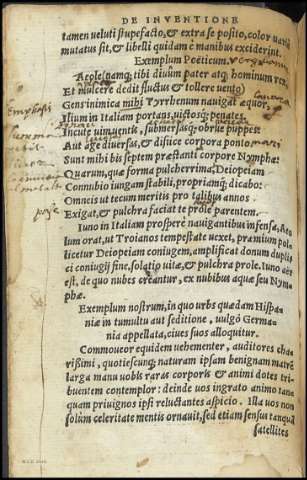 DE INVENTIONE
tamen veluti stupefacto, & extra se posito, color variè
mutatus sit, & libelli quidam è manibus exciderint.
Exemplum Poëticum.
Aeole (namq; tibi diuûm pater atq; hominum rex
Et mulcere dedit fluctus & tollere uento)
Gens inimica mihi Tyrrhenum nauigat æquor,
Ilium in Italiam portans, uictosq; penates.
Incute uim uentis, submersasq; obrue puppes:
Aut age diuersas, & disijce corpora ponto
Sunt mihi bis septem præstanti corpore Nymphæ:
Quarum, quæ forma pulcherrima, Deiopeiam
Connubio iungam stabili, propriamq; dicabo:
Omneis ut tecum meritis pro talibus annos
Exigat, & pulchra faciat te prole parentem.
Iuno in Italiam prosperè nauigantibus infensa, Aeo
lum orat, ut Troianos tempestate uexet, præmium pol
licetur Deiopeiam coniugem, amplificat donum dupli
ci coniugij fine, solatio uitæ, & pulchra prole. Iuno aër
est, de quo nubes creantur, ex nubibus aquæ seu Nym
phæ.
Exemplum nostrum, in quo urbs quædam Hispa
niæ in tumultu aut seditione, uulgò Germa
nia appellata, ciues suos alloquitur.
Commoueor equidem uehementer, auditores cha
rißimi, quotiescunq; naturam ipsam benignam matrē
larga manu uobis raras corporis & animi dotes tri
buentem contemplor: deinde uos ingrato animo tan
quam priuignos ipsi reluctantes aspicio. Illa uos non
solùm celeritate mentis ornauit, sed etiam sensus tanquā
satellites